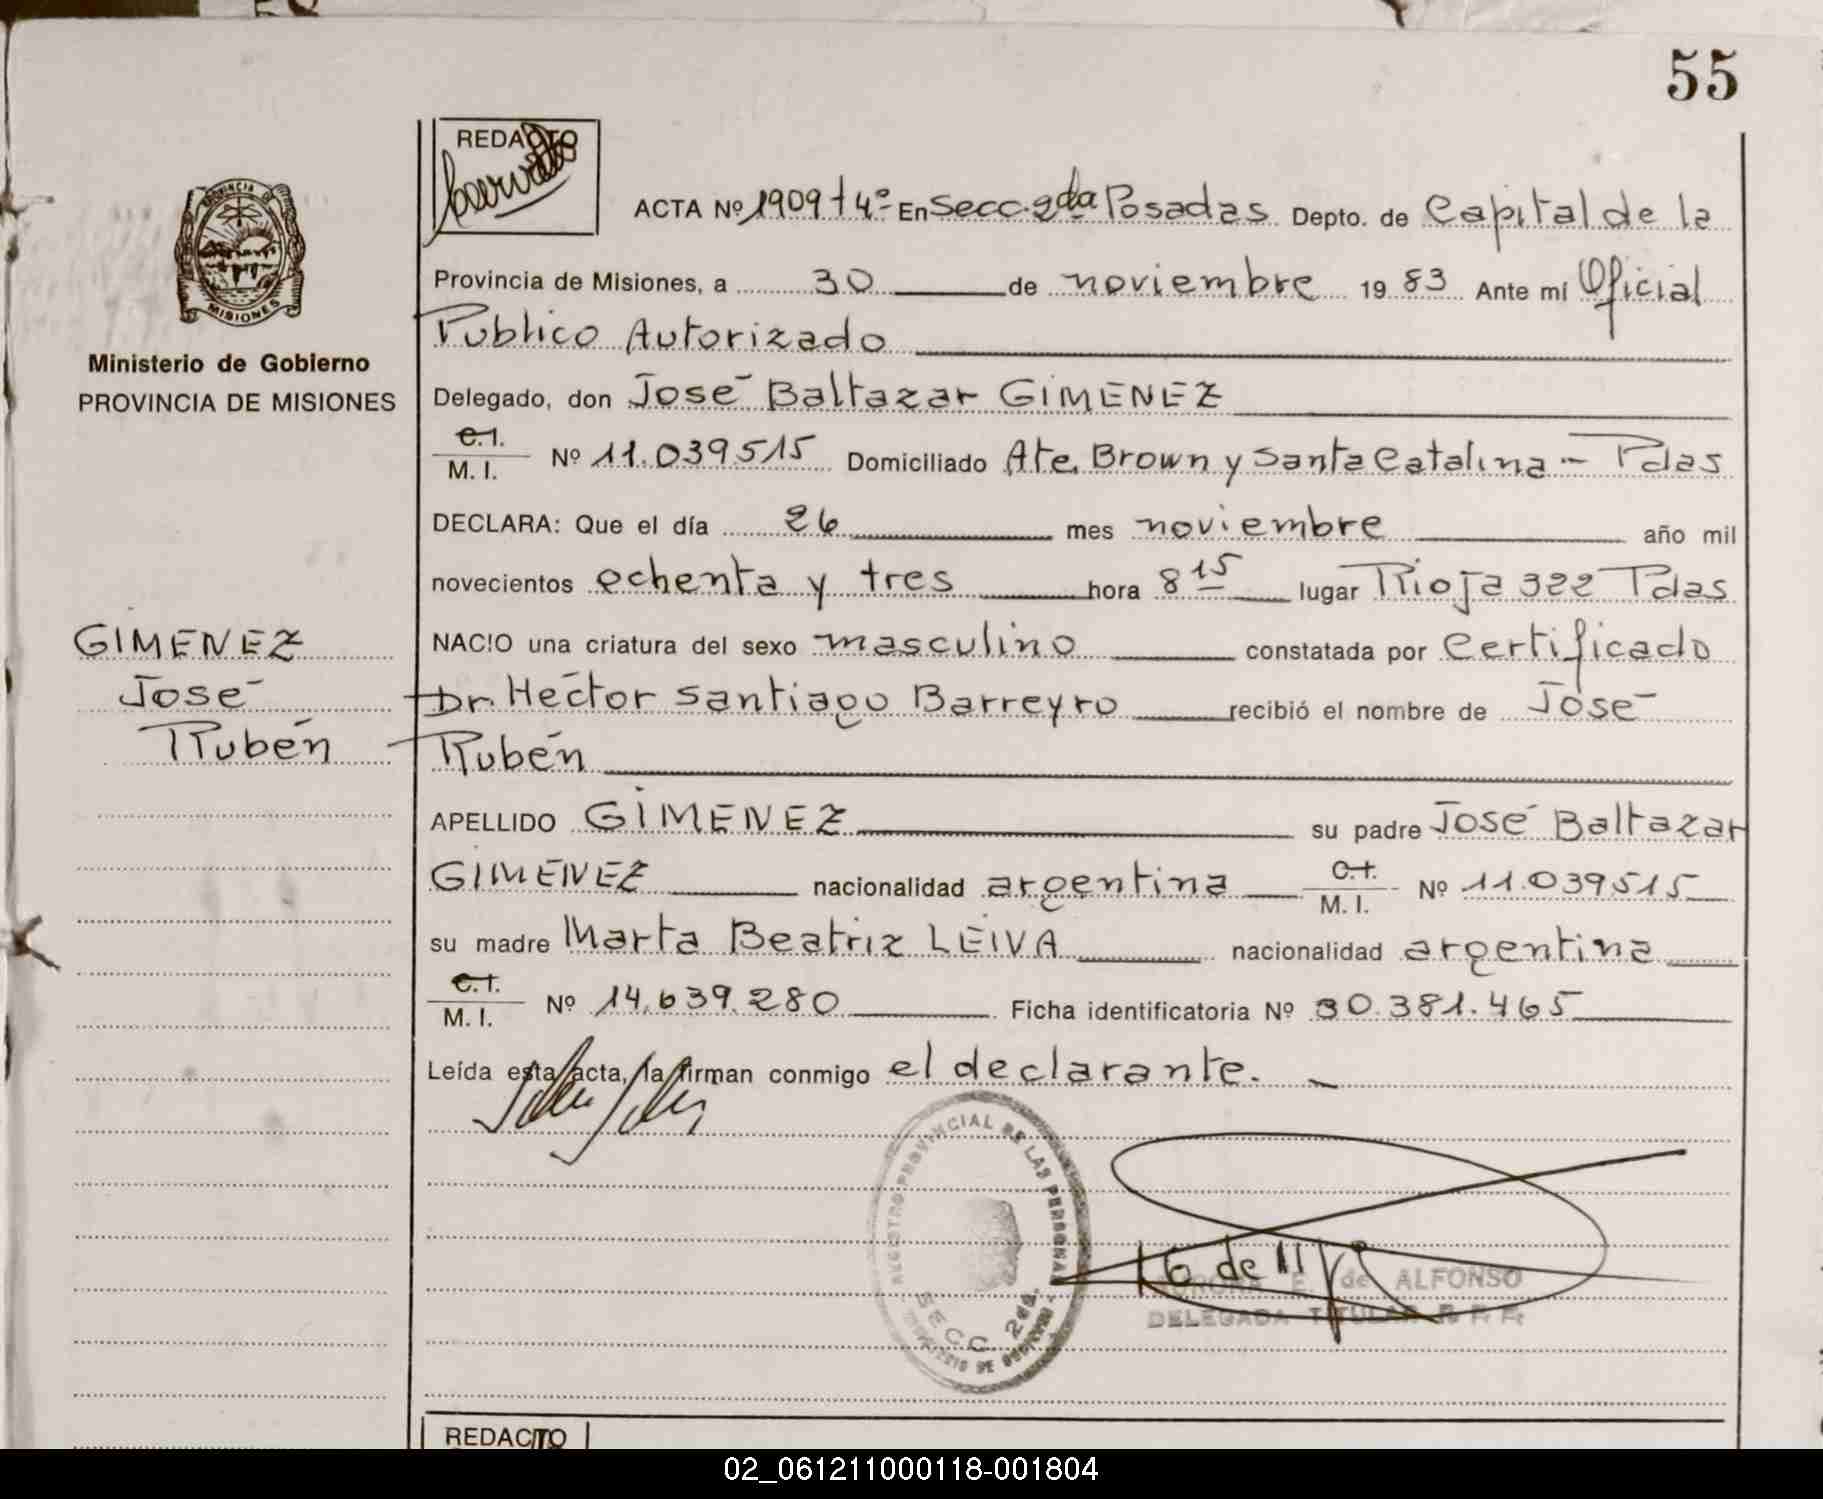 55
REDACTO
PROVINCIA DE
MISIONES
Ministerio de Gobierno
PROVINCIA DE MISIONES
ACTA Nº 1909 t 4º En Secc. 2da Posadas Depto. de Capital de la
Provincia de Misiones, a 30 de noviembre 19 83 Ante mi Oficial
Publico Autorizado
Delegado, don José Baltazar GIMENEZ
C.I. M. I. Nº 11.039515 Domiciliado Ate. Brown y Santa Catalina - Pdas
DECLARA: Que el día 26 mes noviembre año mil
novecientos ochenta y tres hora 8 15 lugar Rioja 322 Pdas
NACIO una criatura del sexo masculino constatada por Certificado
Dr. Héctor Santiago Barreyro recibió el nombre de José
Rubén
GIMENEZ
José
Rubén
APELLIDO GIMENEZ su padre José Baltazar
GIMENEZ nacionalidad argentina C.I. M. I. Nº 11.039515
su madre Marta Beatriz LEIVA nacionalidad argentina
C.I. M. I. Nº 14.639.280 Ficha identificatoria Nº 30.381.465
Leída esta acta, la firman conmigo el declarante.
REGISTRO PROVINCIAL DE LAS PERSONAS
SECC 2da.
E. de ALFONSO
DELEGADA TITULAR
REDACTO
02_061211000118-001804